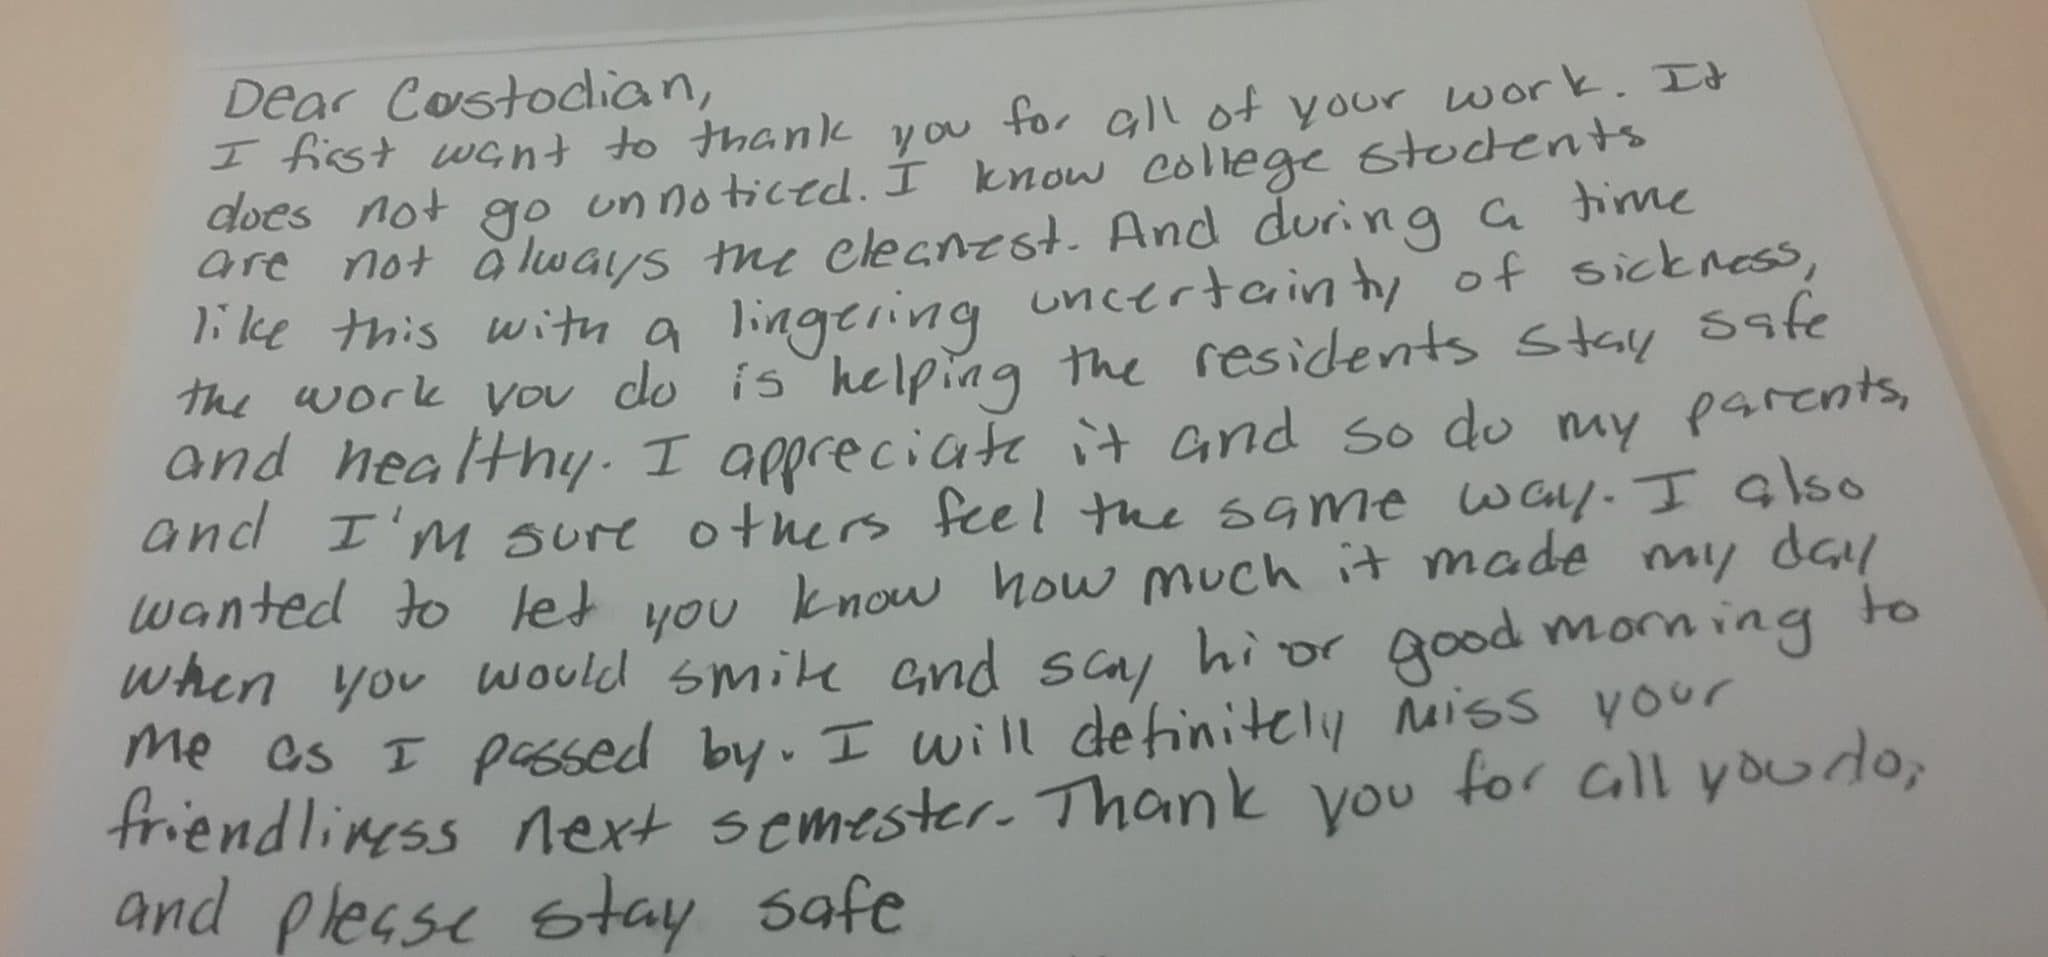 Dear Custodian,
I first want to thank you for all of your work. It
does not go unnoticed. I know college students
are not always the cleanest. And during a time
like this with a lingering uncertainty of sickness,
the work you do is helping the residents stay safe
and healthy. I appreciate it and so do my parents,
and I'm sure others feel the same way. I also
wanted to let you know how much it made my day
when you would smile and say hi or good morning to
me as I passed by. I will definitely miss your
friendliness next semester. Thank you for all you do,
and please stay safe